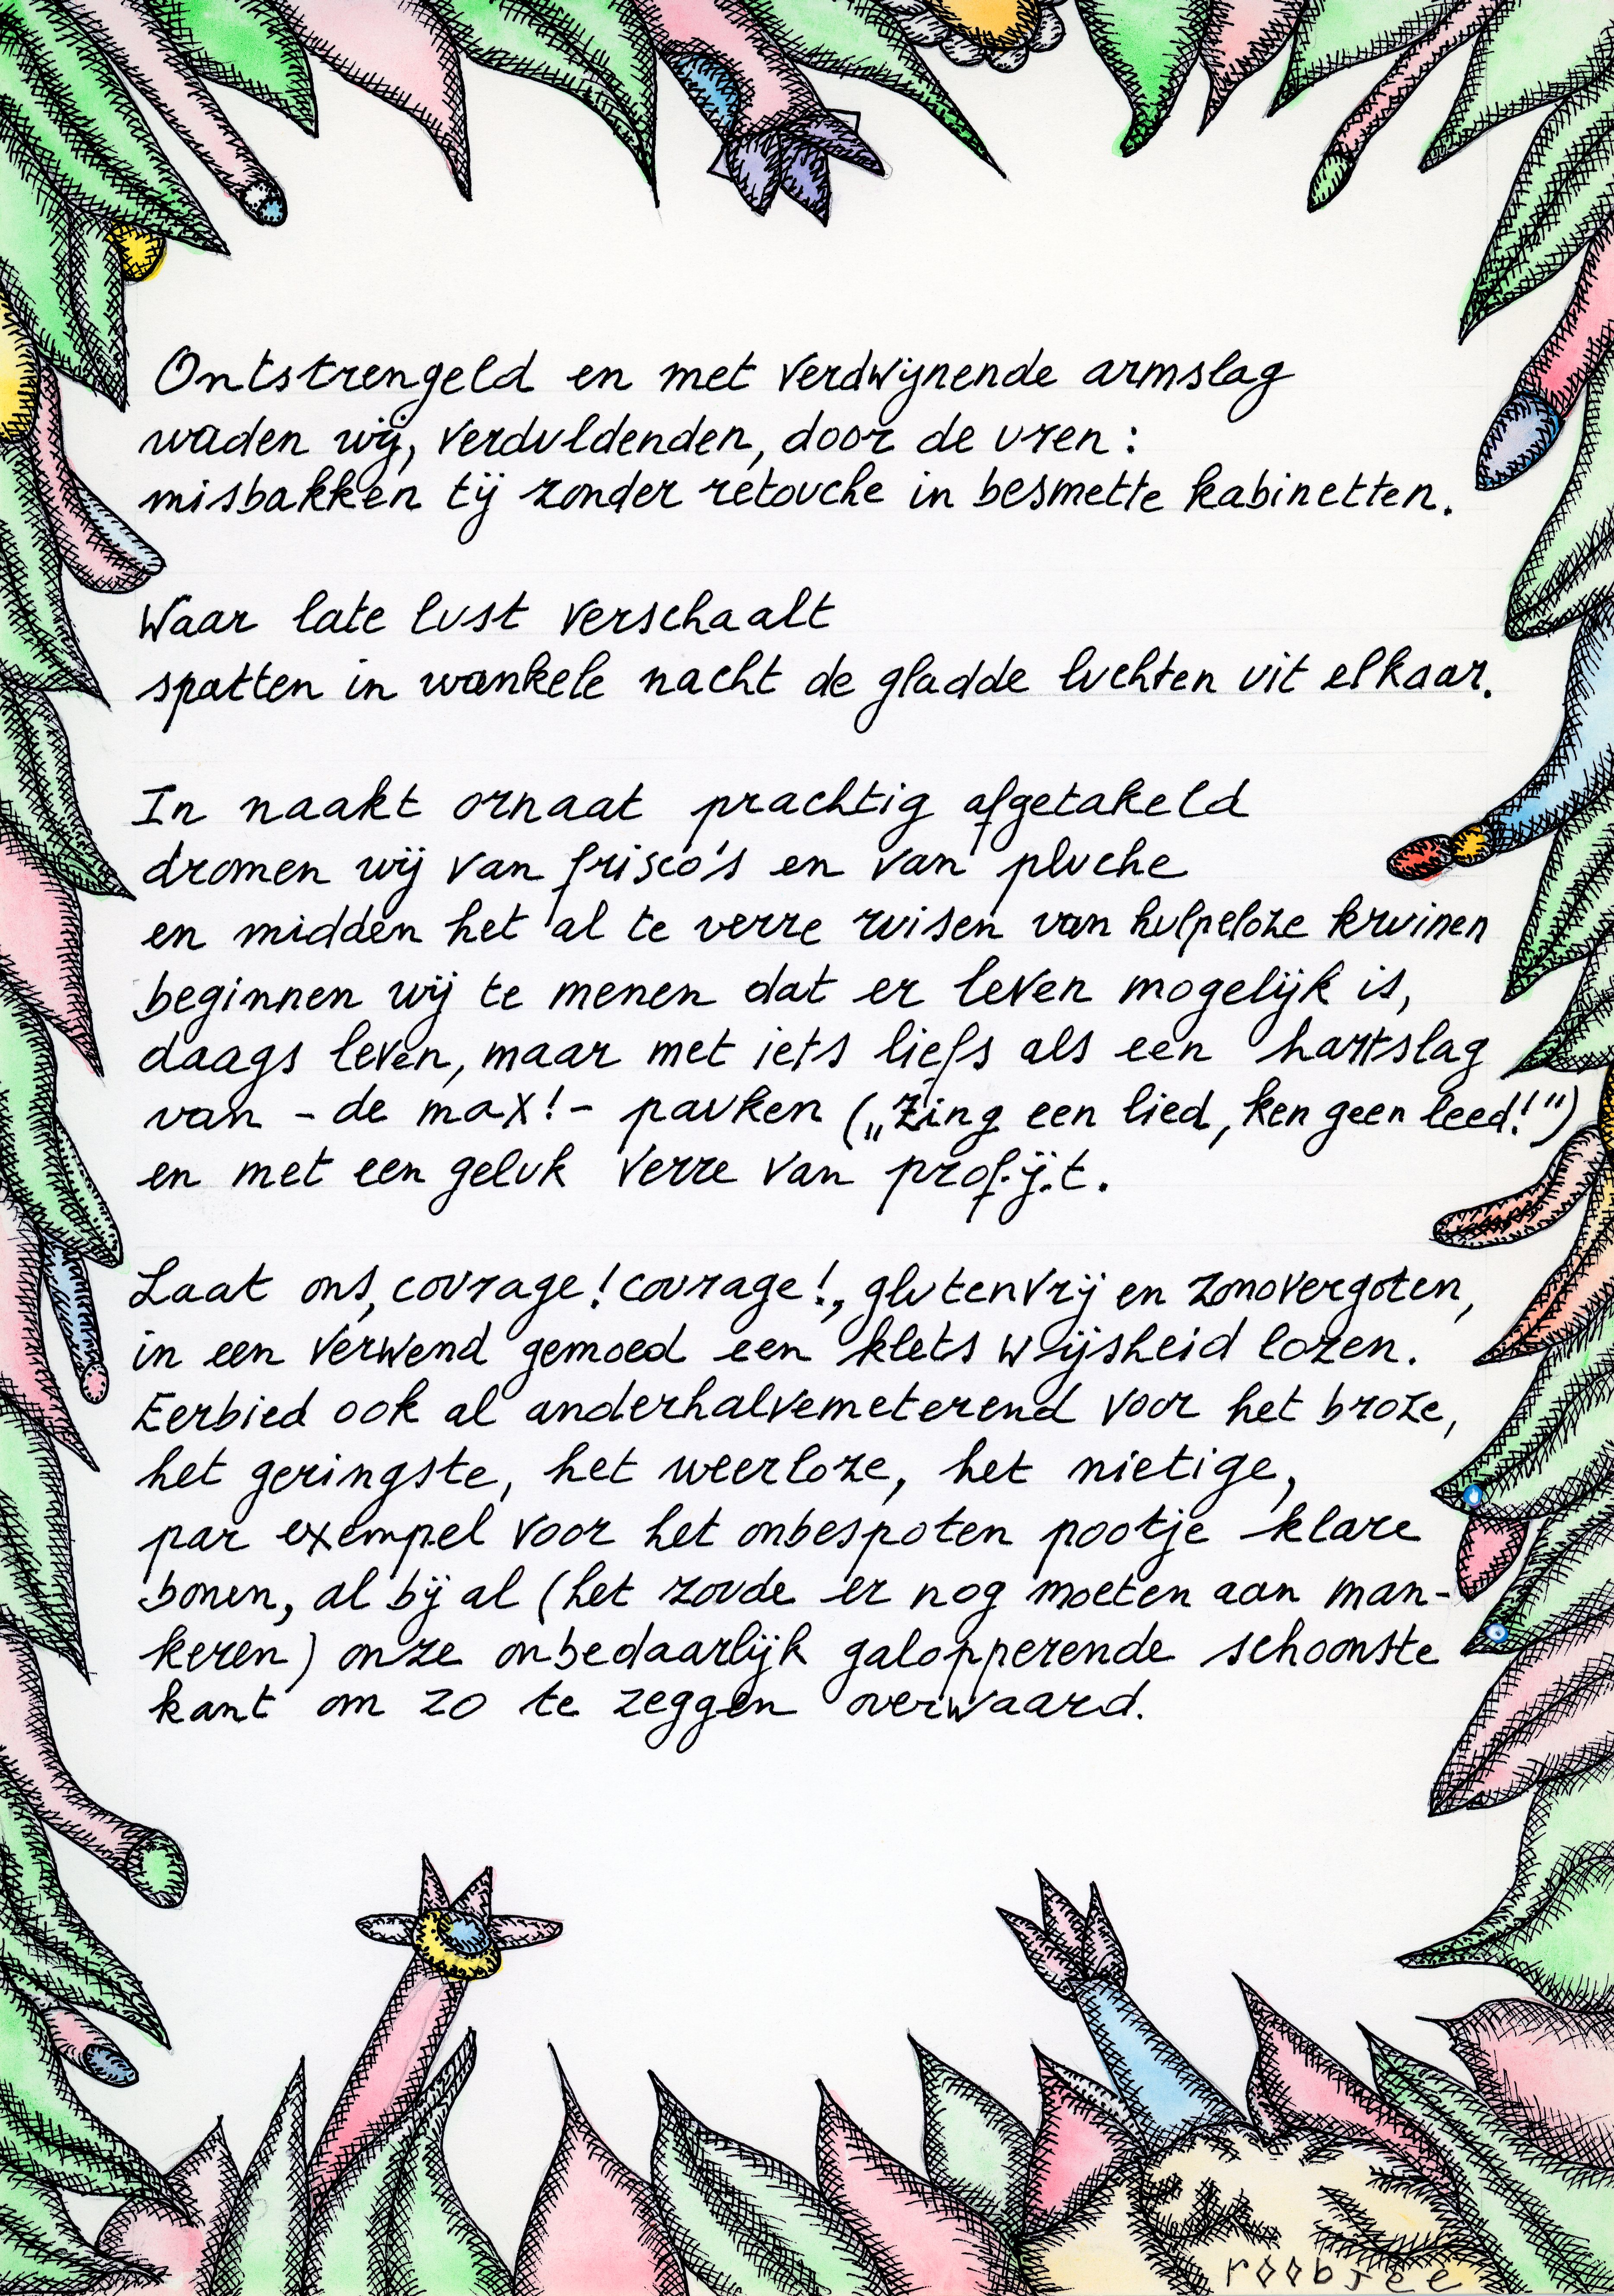 Ontstrengeld en met verdwijnende armslag
waden wij, verduldenden, door de uren:
misbakken tij zonder retouche in besmette kabinetten.
Waar late lust verschaalt
spatten in wankele nacht de gladde luchten uit elkaar.
In naakt ornaat prachtig afgetakeld
dromen wij van frisco's en van pluche
en midden het al te verre ruisen van hulpeloze kruinen
beginnen wij te menen dat er leven mogelijk is,
daags leven, maar met iets liefs als een hartslag
van - de max! - pauken („Zing een lied, ken geen leed!")
en met een geluk verre van prof.ij.t.
Laat ons, courage! courage!, glutenvrij en zonovergoten,
in een verwend gemoed een klets wijsheid lozen.
Eerbied ook al anderhalvemeterend voor het broze,
het geringste, het weerloze, het nietige,
par exempel voor het onbespoten pootje klare
bonen, al bij al (het zoude er nog moeten aan man-
keren) onze onbedaarlijk galopperende schoonste
kant om zo te zeggen overwaard.
roobjee